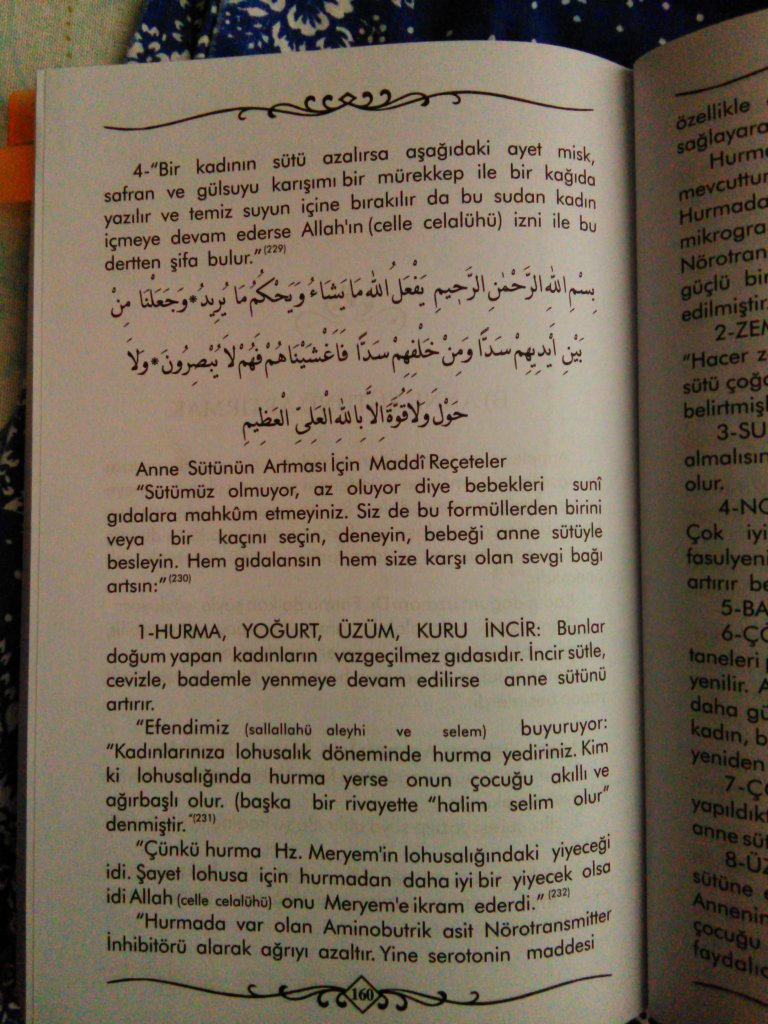 4-“Bir kadının sütü azalırsa aşağıdaki ayet misk,
safran ve gülsuyu karışımı bir mürekkep ile bir kağıda
yazılır ve temiz suyun içine bırakılır da bu sudan kadın
içmeye devam ederse Allah'ın (celle celalühü) izni ile bu
dertten şifa bulur.” (229)
بِسْمِ اللهِ الرَّحْمٰنِ الرَّحِيمِ يَفْعَلُ اللهُ مَا يَشَاءُ وَيَحْكُمُ مَا يُرِيدُ * وَجَعَلْنَا مِنْ
بَيْنِ أَيْدِيهِمْ سَدًّا وَمِنْ خَلْفِهِمْ سَدًّا فَاَغْشَيْنَاهُمْ فَهُمْ لَا يُبْصِرُونَ * وَلَا
حَوْلَ وَلَا قُوَّةَ اِلَّا بِاللهِ الْعَلِيِّ الْعَظِيمِ
Anne Sütünün Artması İçin Maddî Reçeteler
“Sütümüz olmuyor, az oluyor diye bebekleri sunî
gıdalara mahkûm etmeyiniz. Siz de bu formüllerden birini
veya bir kaçını seçin, deneyin, bebeği anne sütüyle
besleyin. Hem gıdalansın hem size karşı olan sevgi bağı
artsın:” (230)
1-HURMA, YOĞURT, ÜZÜM, KURU İNCİR: Bunlar
doğum yapan kadınların vazgeçilmez gıdasıdır. İncir sütle,
cevizle, bademle yenmeye devam edilirse anne sütünü
artırır.
“Efendimiz (sallallahü aleyhi ve selem) buyuruyor:
“Kadınlarınıza lohusalık döneminde hurma yediriniz. Kim
ki lohusalığında hurma yerse onun çocuğu akıllı ve
ağırbaşlı olur. (başka bir rivayette “halim selim olur”
denmiştir.”(231)
“Çünkü hurma Hz. Meryem'in lohusalığındaki yiyeceği
idi. Şayet lohusa için hurmadan daha iyi bir yiyecek olsa
idi Allah (celle celalühü) onu Meryem'e ikram ederdi.” (232)
“Hurmada var olan Aminobutrik asit Nörotransmitter
İnhibitörü alarak ağrıyı azaltır. Yine serotonin maddesi
160
özellikle
sağlayara
Hurme
mevcuttur
Hurmada
mikrogra
Nörotran
güçlü bir
edilmiştir.
2-ZEM
“Hacer z
sütü çoğa
belirtmişl
3-SU
almalısın
olur.
4-NO
Çok iyi
fasulyeni
artırır be
5-BA
6-ÇÖ
taneleri
yenilir. A
daha gü
kadın, b
yeniden
7-Ç
yapıldıkt
anne süt
8-Ü
sütüne
Annenin
çocuğu
faydalıd